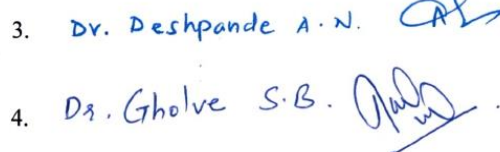 3. Dr. Deshpande A. N.
4. Dr. Gholve S.B.